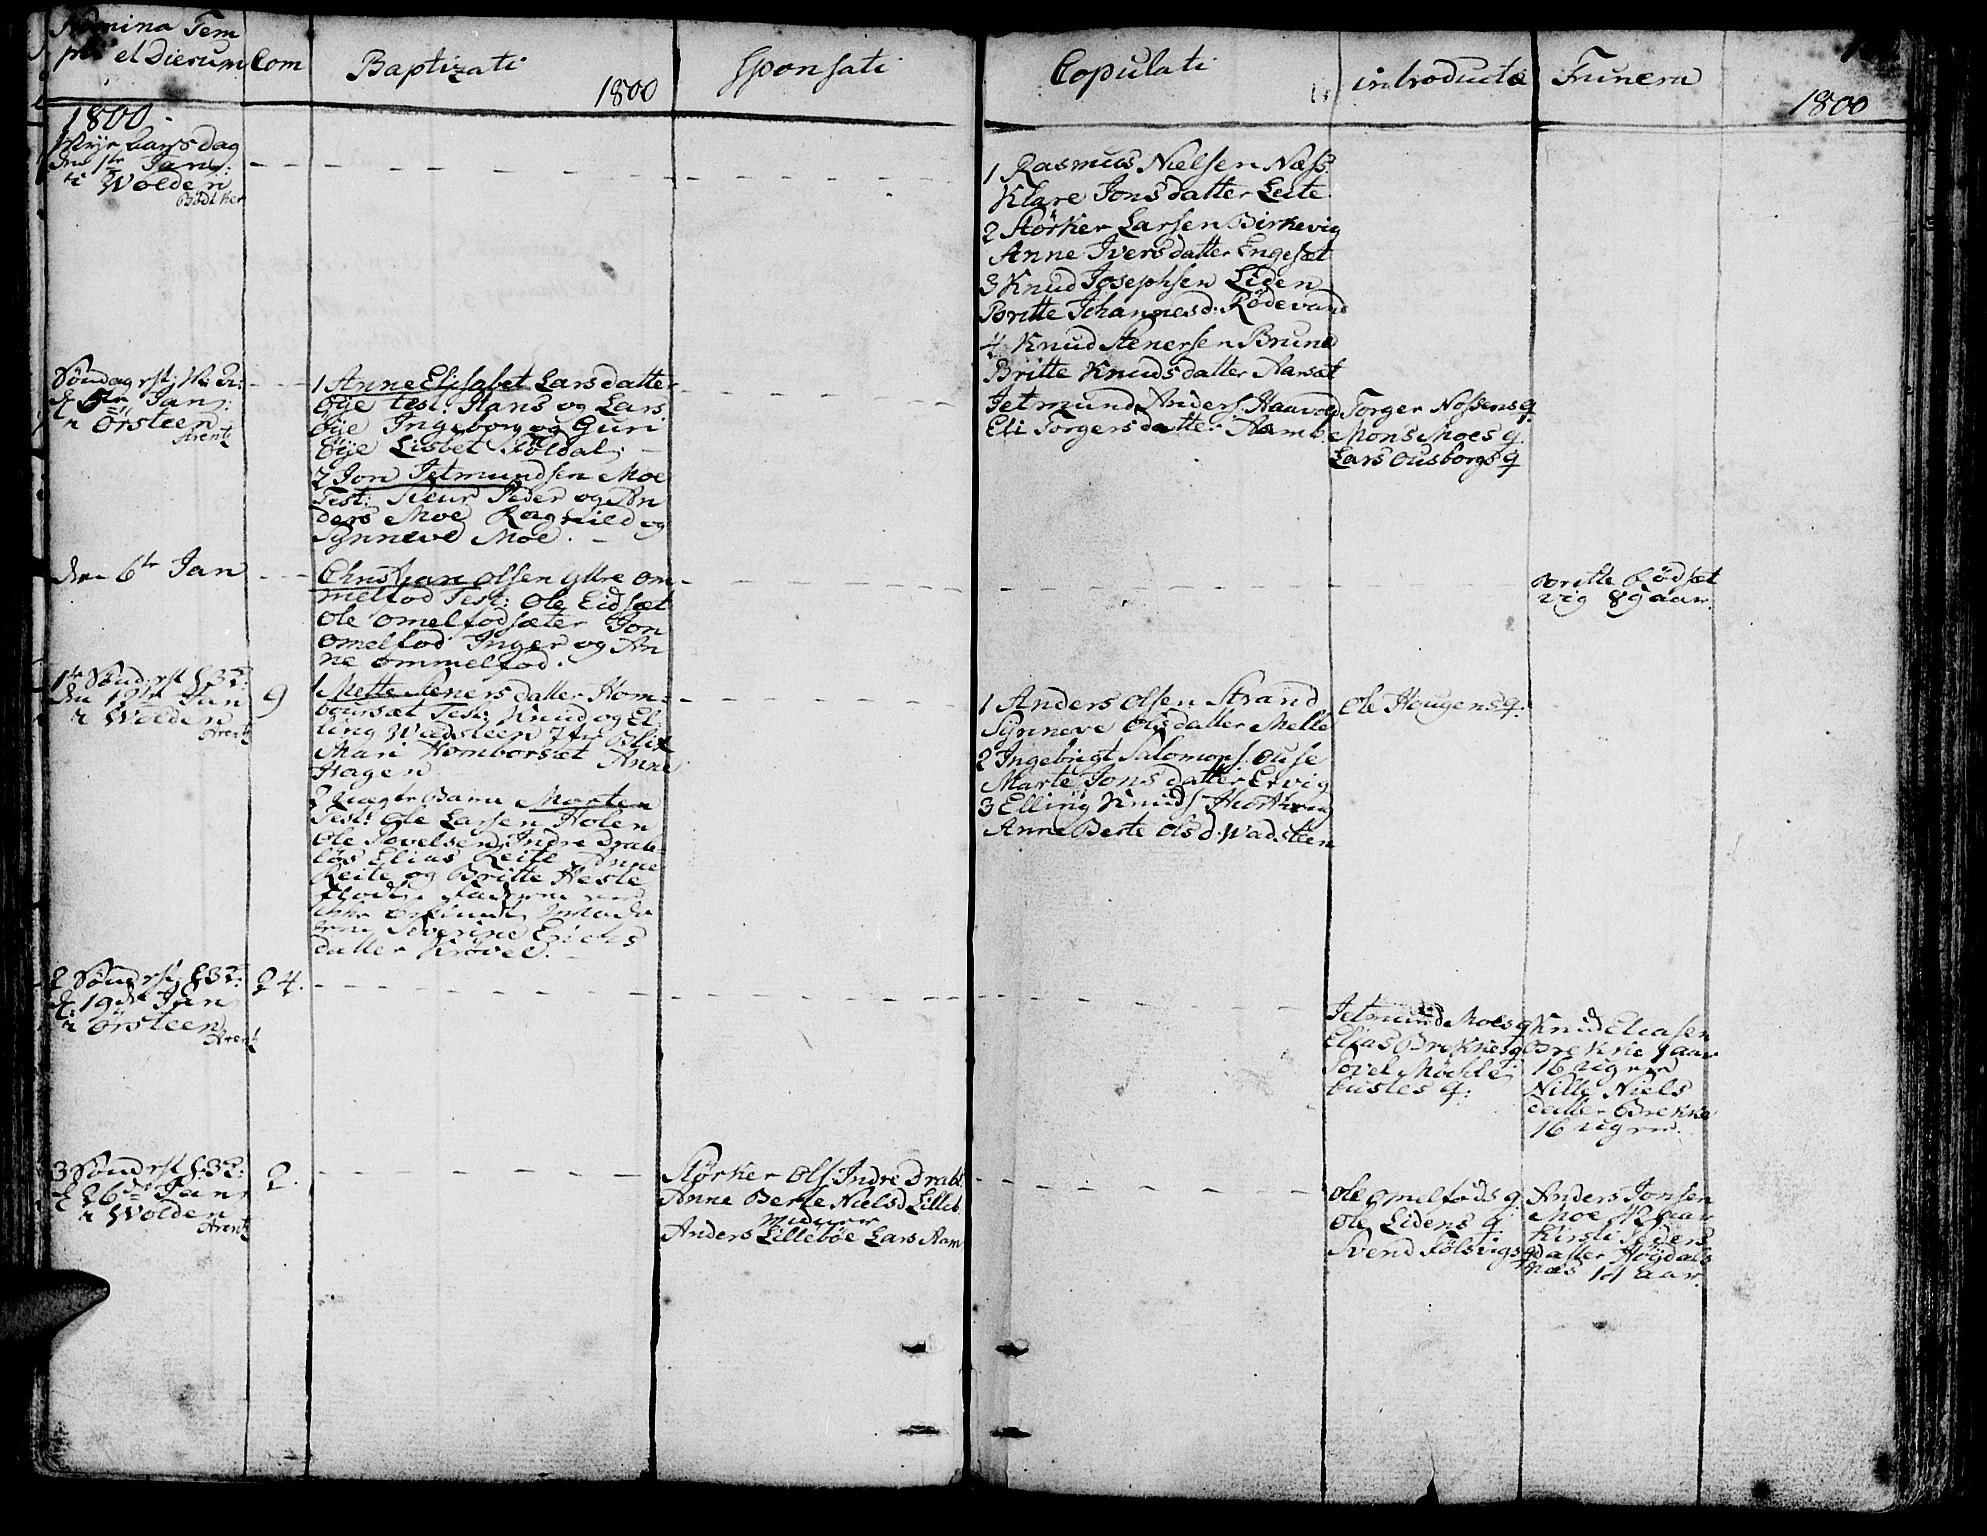 Nomina Tem
pli et Dierum
Com
Baptizati
1800
Sponsati
Copulati
introductæ
Funera
1800
1800
Nye Aarsdag
den 1te Jan:
i Wolden
Bødtker
1 Rasmus Nielsen Næss
Klare Jonsdatter Leite
2 Størker Larsen Birkevig
Anne Iversdatter Engeset
3 Knud Josephsen Liden
Britte Johannesd: Rødevand
4 Knud Stenersen Brune
Britte Knudsdatter Aarsæt
Søndag
d 5te Jan:
i Ørsteen
Arentz
1 Anne Elisabet Larsdatter
Øye test: Hans og Lars
Øye Ingeborg og Guri
Øye Lisbet Føldal
2 Jon Jetmundsen Moe
Test: Siur Peder og An
ders Moe Ragnild og
Synneve Moe.
Jetmund Anders: Haavold
Eli Torgersdatter Aamb
Torger Nossens q
Mons Moes q.
Lars Ousborgs q
den 6te Jan
Christian Olsen yttre om
melfod Test: Ole Eidsæt
Ole omelfodsæter Jon
omelfod Inger og An
ne ommelfod.
Britte Bødsæt
vig 89 aar.
1te Sønd
den 12te Jan
i Wolden
Arentz
9
1 Mette Stenersdatter Hom-
boursæt Test: Knud og El
ling Wadsteen Blix
Mari Homborset Anne
Hagen
2 Uægte Barn Morten
Test: Ole Larsen Holen
Ole Povelsen Indre Drab-
løs Elias Reite Anne
Reite og Britte Heste
flod
Severine Erichs
datter Krøvel.
1 Anders Olsen Strand
Synneve Olsdatter Melle
2 Ingebrigt Salomons: Ouse
Marte Jonsdatter Ervig
3 Elling Knuds
Anne Berte Olsd: Wadsteen
Ole Hougens q:
2 Sønd
d: 19de Jan
i Ørsteen
Arentz
24.
Jetmund Moes q
Elias Brekkes q
Povel Møckle
bustes q:
Knud Eliasen
Brekke 1 aar
16 Uger
Nille Niels
datter Brekke
16 Uger.
3 Sønd
d 26de Jan
i Wolden
Arentz
2.
Størker Ols: Indre Drabl:
Anne Berte Nielsd Lilleb.
Anders Lillebøe Lars Aam
Ole omelfods q
Ole Lidens q
Svend Følsvigs q
Anders Jonsen
Moe 42 aar
Kirsti Peders
datter Høydals
næs 14 aar.